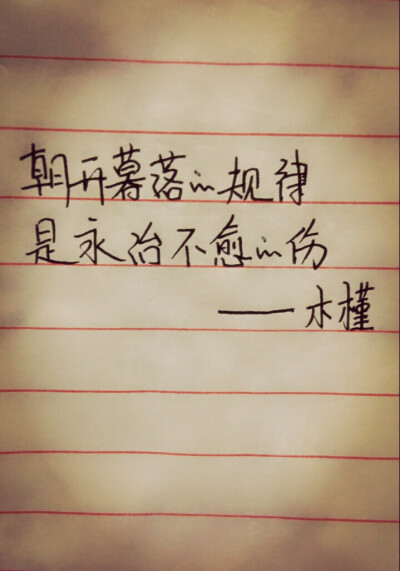 朝开暮落的规律
是永治不愈的伤
——木槿